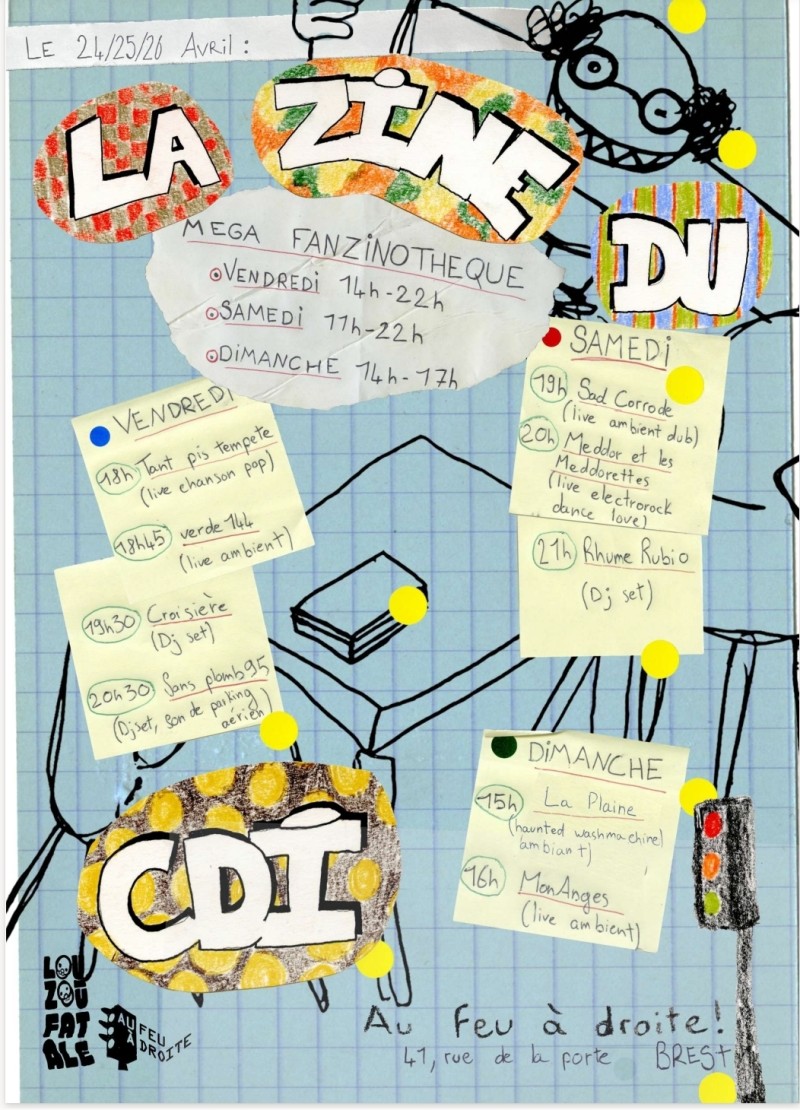 LE 24/25/26 Avril :
LA ZINE
DU
MEGA FANZINOTHEQUE
VENDREDI 14h-22h
SAMEDI 11h-22h
DIMANCHE 14h-17h
VENDREDI
18h Tant pis tempete
(live chanson pop)
18h45 verde 144
(live ambient)
19h30 Croisière
(Dj set)
20h30 Sans plomb95
(Dj set, son de parking
aérien)
SAMEDI
19h Sad Corrode
(live ambient dub)
20h Meddor et les
Meddorettes
(live electrorock
dance love)
21h Rhume Rubio
(Dj set)
CDI
DIMANCHE
15h La Plaine
(haunted washmachine
ambiant)
16h MonAnges
(live ambient)
LOU
ZOU
FAT
ALE
AU FEU
À DROITE
Au feu à droite!
41, rue de la porte BREST